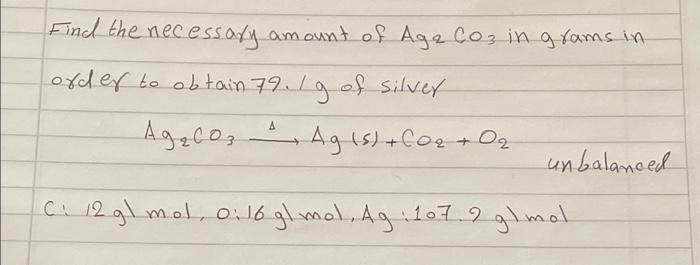 Find the necessary amount of Ag2 CO3 in grams in
order to obtain 79.1g of silver
Ag2CO3 —Δ→ Ag (s) + CO2 + O2
unbalanced
C: 12 g\ mol, O:16 g\ mol, Ag:107.9 g\ mol